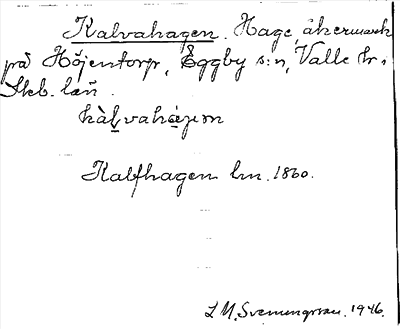 Kalvahagen. Hage, åkermark
på Höjentorp, Eggby s:n, Valle hr,
Skb. län.
hàlvahàgen
Kalfhagen lm. 1860.
L M. Svenungsson. 1946.